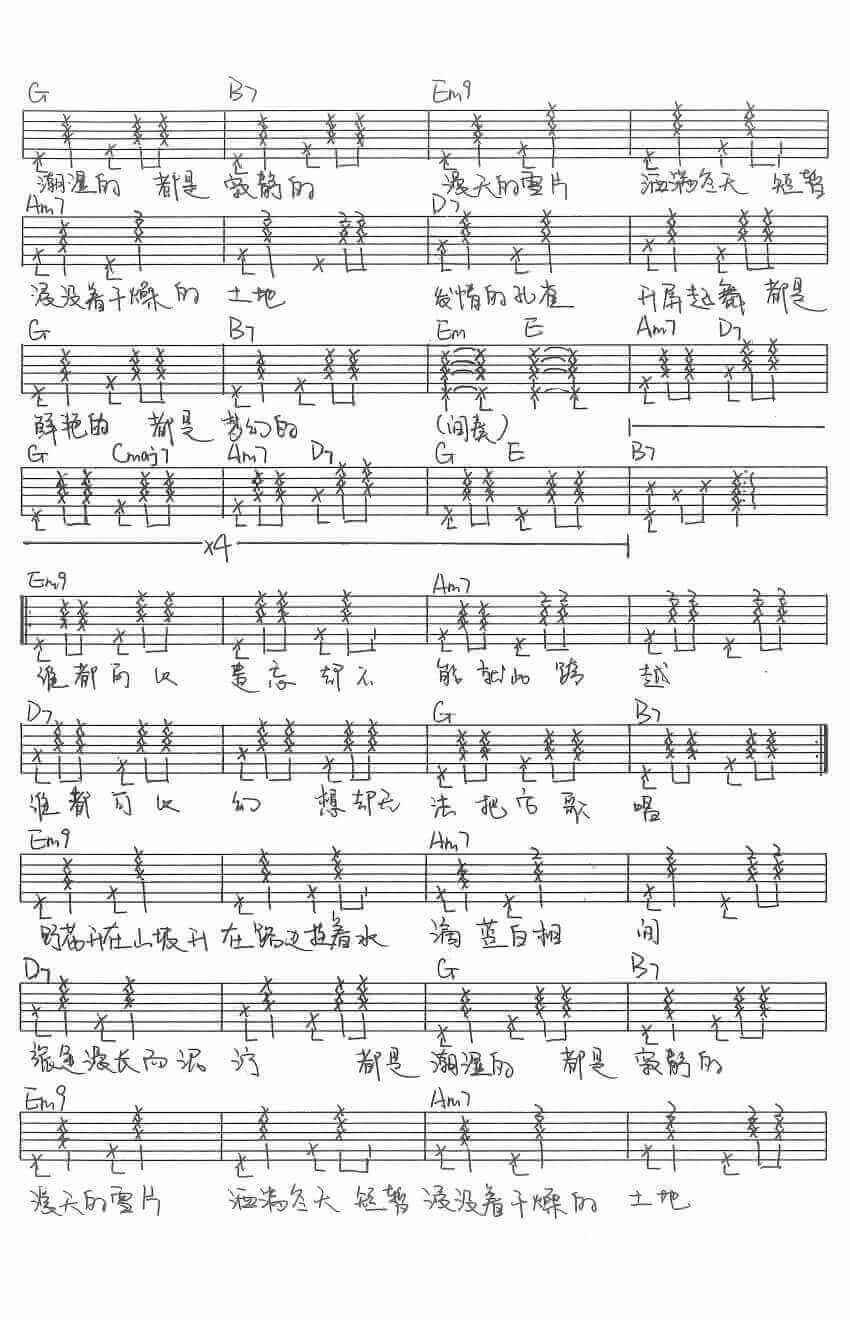 G B7 Em9
潮湿的 都是 寂静的 漫天的雪片 洒满冬天 短暂
Am7 D7
浸没着干燥的 土地 发情的孔雀 开屏起舞 都是
G B7 Em E Am7 D7
鲜艳的 都是 梦幻的 (间奏)
G Cmaj7 Am7 D7 G E B7
x4
Em9 Am7
谁都可以 遗忘却不 能就此 跨 越
D7 G B7
谁都可以 幻 想却无 法把它歌 唱
Em9 Am7
野花开在山坡开 在路边挂着水 滴 蓝白相 间
D7 G B7
漫长而泥泞 都是 潮湿的 都是 寂静的
Em9 Am7
漫天的雪片 洒满冬天 短暂 浸没着干燥的 土地